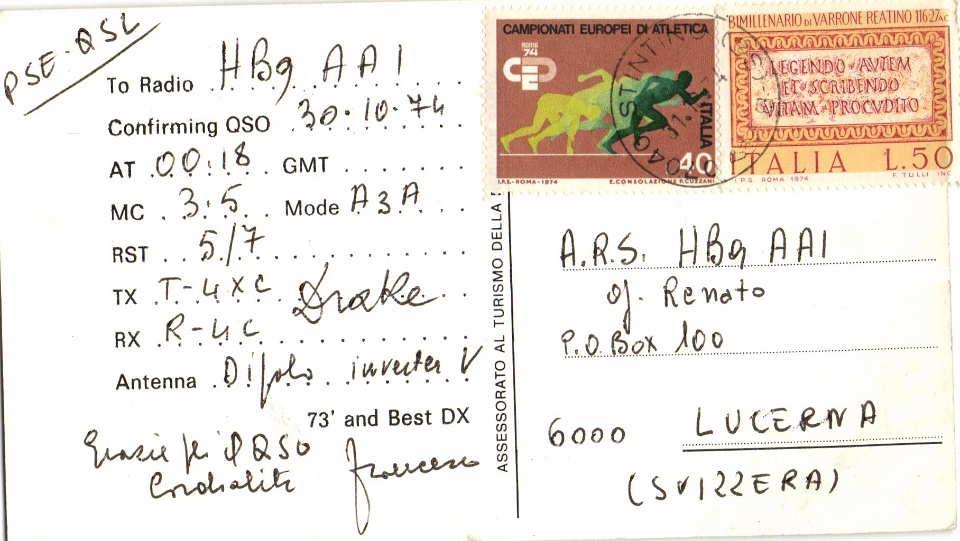 PSE-QSL
To Radio HB9 AA1
Confirming QSO 30.10.74
AT 00.18 GMT
MC 3.5 Mode A3A
RST 5/7
TX T-4XC Drake
RX R-4C
Antenna Dipolo inverter V
73' and Best DX
Grazie per il QSO
Cordialità
Francesco
ASSESSORATO AL TURISMO DELLA
CAMPIONATI EUROPEI DI ATLETICA
ROMA
'74
ITALIA
40
I.P.S.-ROMA-1974 E.CONSOLAZIONE-P.CUZZANI
BIMILLENARIO DI VARRONE REATINO 116-27 AC
LEGENDO·AVTEM
ET·SCRIBENDO
VITAM·PROCVDITO
ITALIA L.50
I.P.S. ROMA 1974 F. TULLI INC
A.R.S. HB9 AA1
Renato
P.O. Box 100
6000 LUCERNA
(SVIZZERA)